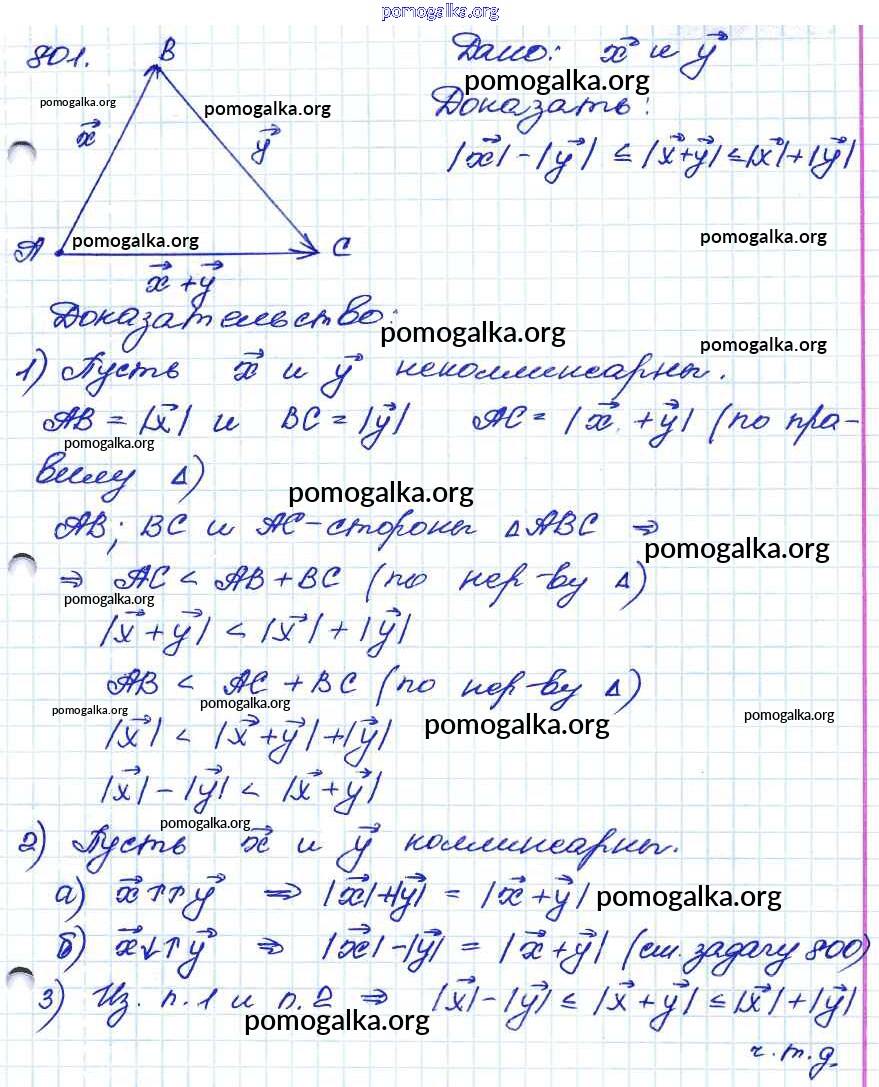 pomogalka.org
801.
B
Дано: x⃗ и y⃗
pomogalka.org
pomogalka.org
pomogalka.org
Доказать:
x⃗
y⃗
|x⃗| - |y⃗| ≤ |x⃗+y⃗| ≤ |x⃗| + |y⃗|
A
pomogalka.org
C
pomogalka.org
x⃗ + y⃗
Доказательство:
pomogalka.org
pomogalka.org
1) Пусть x⃗ и y⃗ неколлинеарны.
AB = |x⃗| и BC = |y⃗| AC = |x⃗ + y⃗| (по пра-
pomogalka.org
вилу Δ)
pomogalka.org
AB; BC и AC - стороны Δ ABC ⇒
pomogalka.org
⇒ AC < AB + BC (по нер-ву Δ)
pomogalka.org
|x⃗ + y⃗| < |x⃗| + |y⃗|
AB < AC + BC (по нер-ву Δ)
pomogalka.org
pomogalka.org
pomogalka.org
pomogalka.org
|x⃗| < |x⃗+y⃗| + |y⃗|
|x⃗| - |y⃗| < |x⃗ + y⃗|
pomogalka.org
2) Пусть x⃗ и y⃗ коллинеарны.
а) x⃗↑↑y⃗ ⇒ |x⃗|+|y⃗| = |x⃗ + y⃗|
pomogalka.org
б) x⃗↓↑y⃗ ⇒ |x⃗| - |y⃗| = |x⃗ + y⃗| (см. задачу 800)
3) Из п.1 и п.2 ⇒ |x⃗| - |y⃗| ≤ |x⃗ + y⃗| ≤ |x⃗| + |y⃗|
pomogalka.org
ч.т.д.